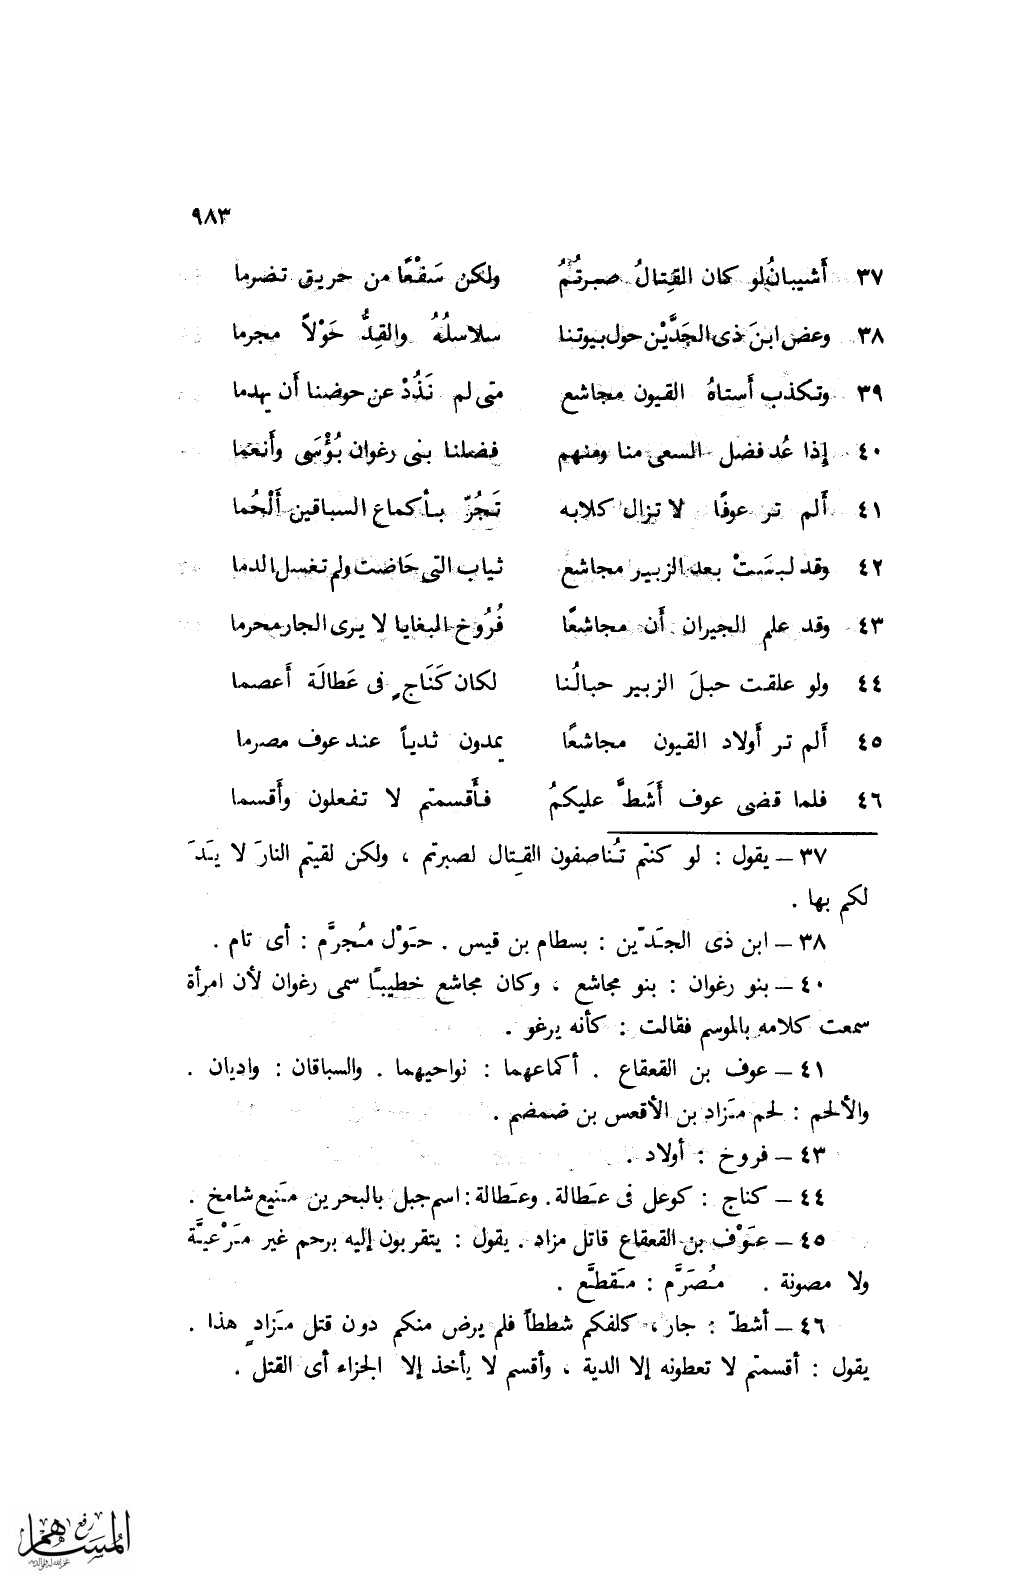 ٩٨٣
٣٧ أَشيبانُ لو كان القِتالُ صبرتُمُ ولكن سَفْعًا من حريق تضرما
٣٨ وعض ابنَ ذى الجَدَّيْن حول بيوتنا سلاسلُهُ والقِدُّ حَوْلاً مجرما
٣٩ وتكذب أَستاهُ القيون مجاشع متى لم نَذُدْ عن حوضنا أَن يهدما
٤٠ إِذا عُد فضل السعى منا ومنهم فضلنا بنى رغوان بُؤْسَى وأَنعما
٤١ أَلم تر عوفًا لا تزال كلابه تَجُرّ بأكماع السباقين أَلْحُما
٤٢ وقد لبسَتْ بعد الزبير مجاشع ثياب التى حَاضت ولم تغسل الدما
٤٣ وقد علم الجيران أَن مجاشعًا فُرُوخ البغايا لا يرى الجار محرما
٤٤ ولو علقت حبلَ الزبير حبالُنا لكان كَنَاجٍ فى عَطالَة أَعصما
٤٥ أَلم تر أَولاد القيون مجاشعًا يمدون ثدياً عند عوف مصرما
٤٦ فلما قضى عوف أَشَطَّ عليكمُ فأَقسمتم لا تفعلون وأَقسما
٣٧ – يقول : لو كنتم تُناصفون القِتال لصبرتم ، ولكن لقيتم النارَ لا يَدَ
لكم بها .
٣٨ – ابن ذى الجَدّين : بسطام بن قيس . حَوْل مُجرَّم : أى تام .
٤٠ – بنو رغوان : بنو مجاشع ، وكان مجاشع خطيبًا سمى رغوان لأن امرأة
سمعت كلامه بالموسم فقالت : كأنه يرغو .
٤١ – عوف بن القعقاع . أكماعهما : نواحيهما . والسباقان : واديان .
والألحم : لحم مَزاد بن الأقعس بن ضمضم .
٤٣ – فروخ : أولاد .
٤٤ – كناج : كوعل فى عَطالة . وعَطالة : اسم جبل بالبحرين مَنيع شامخ .
٤٥ – عَوْف بن القعقاع قاتل مزاد . يقول : يتقربون إليه برحم غير مَرْعيَّة
ولا مصونة . مُصَرَّم : مَقطَّع .
٤٦ – أشطّ : جار ، كلفكم شططاً فلم يرض منكم دون قتل مَزادٍ هذا .
يقول : أقسمتم لا تعطونه إلا الدية ، وأقسم لا يأخذ إلا الجزاء أى القتل .